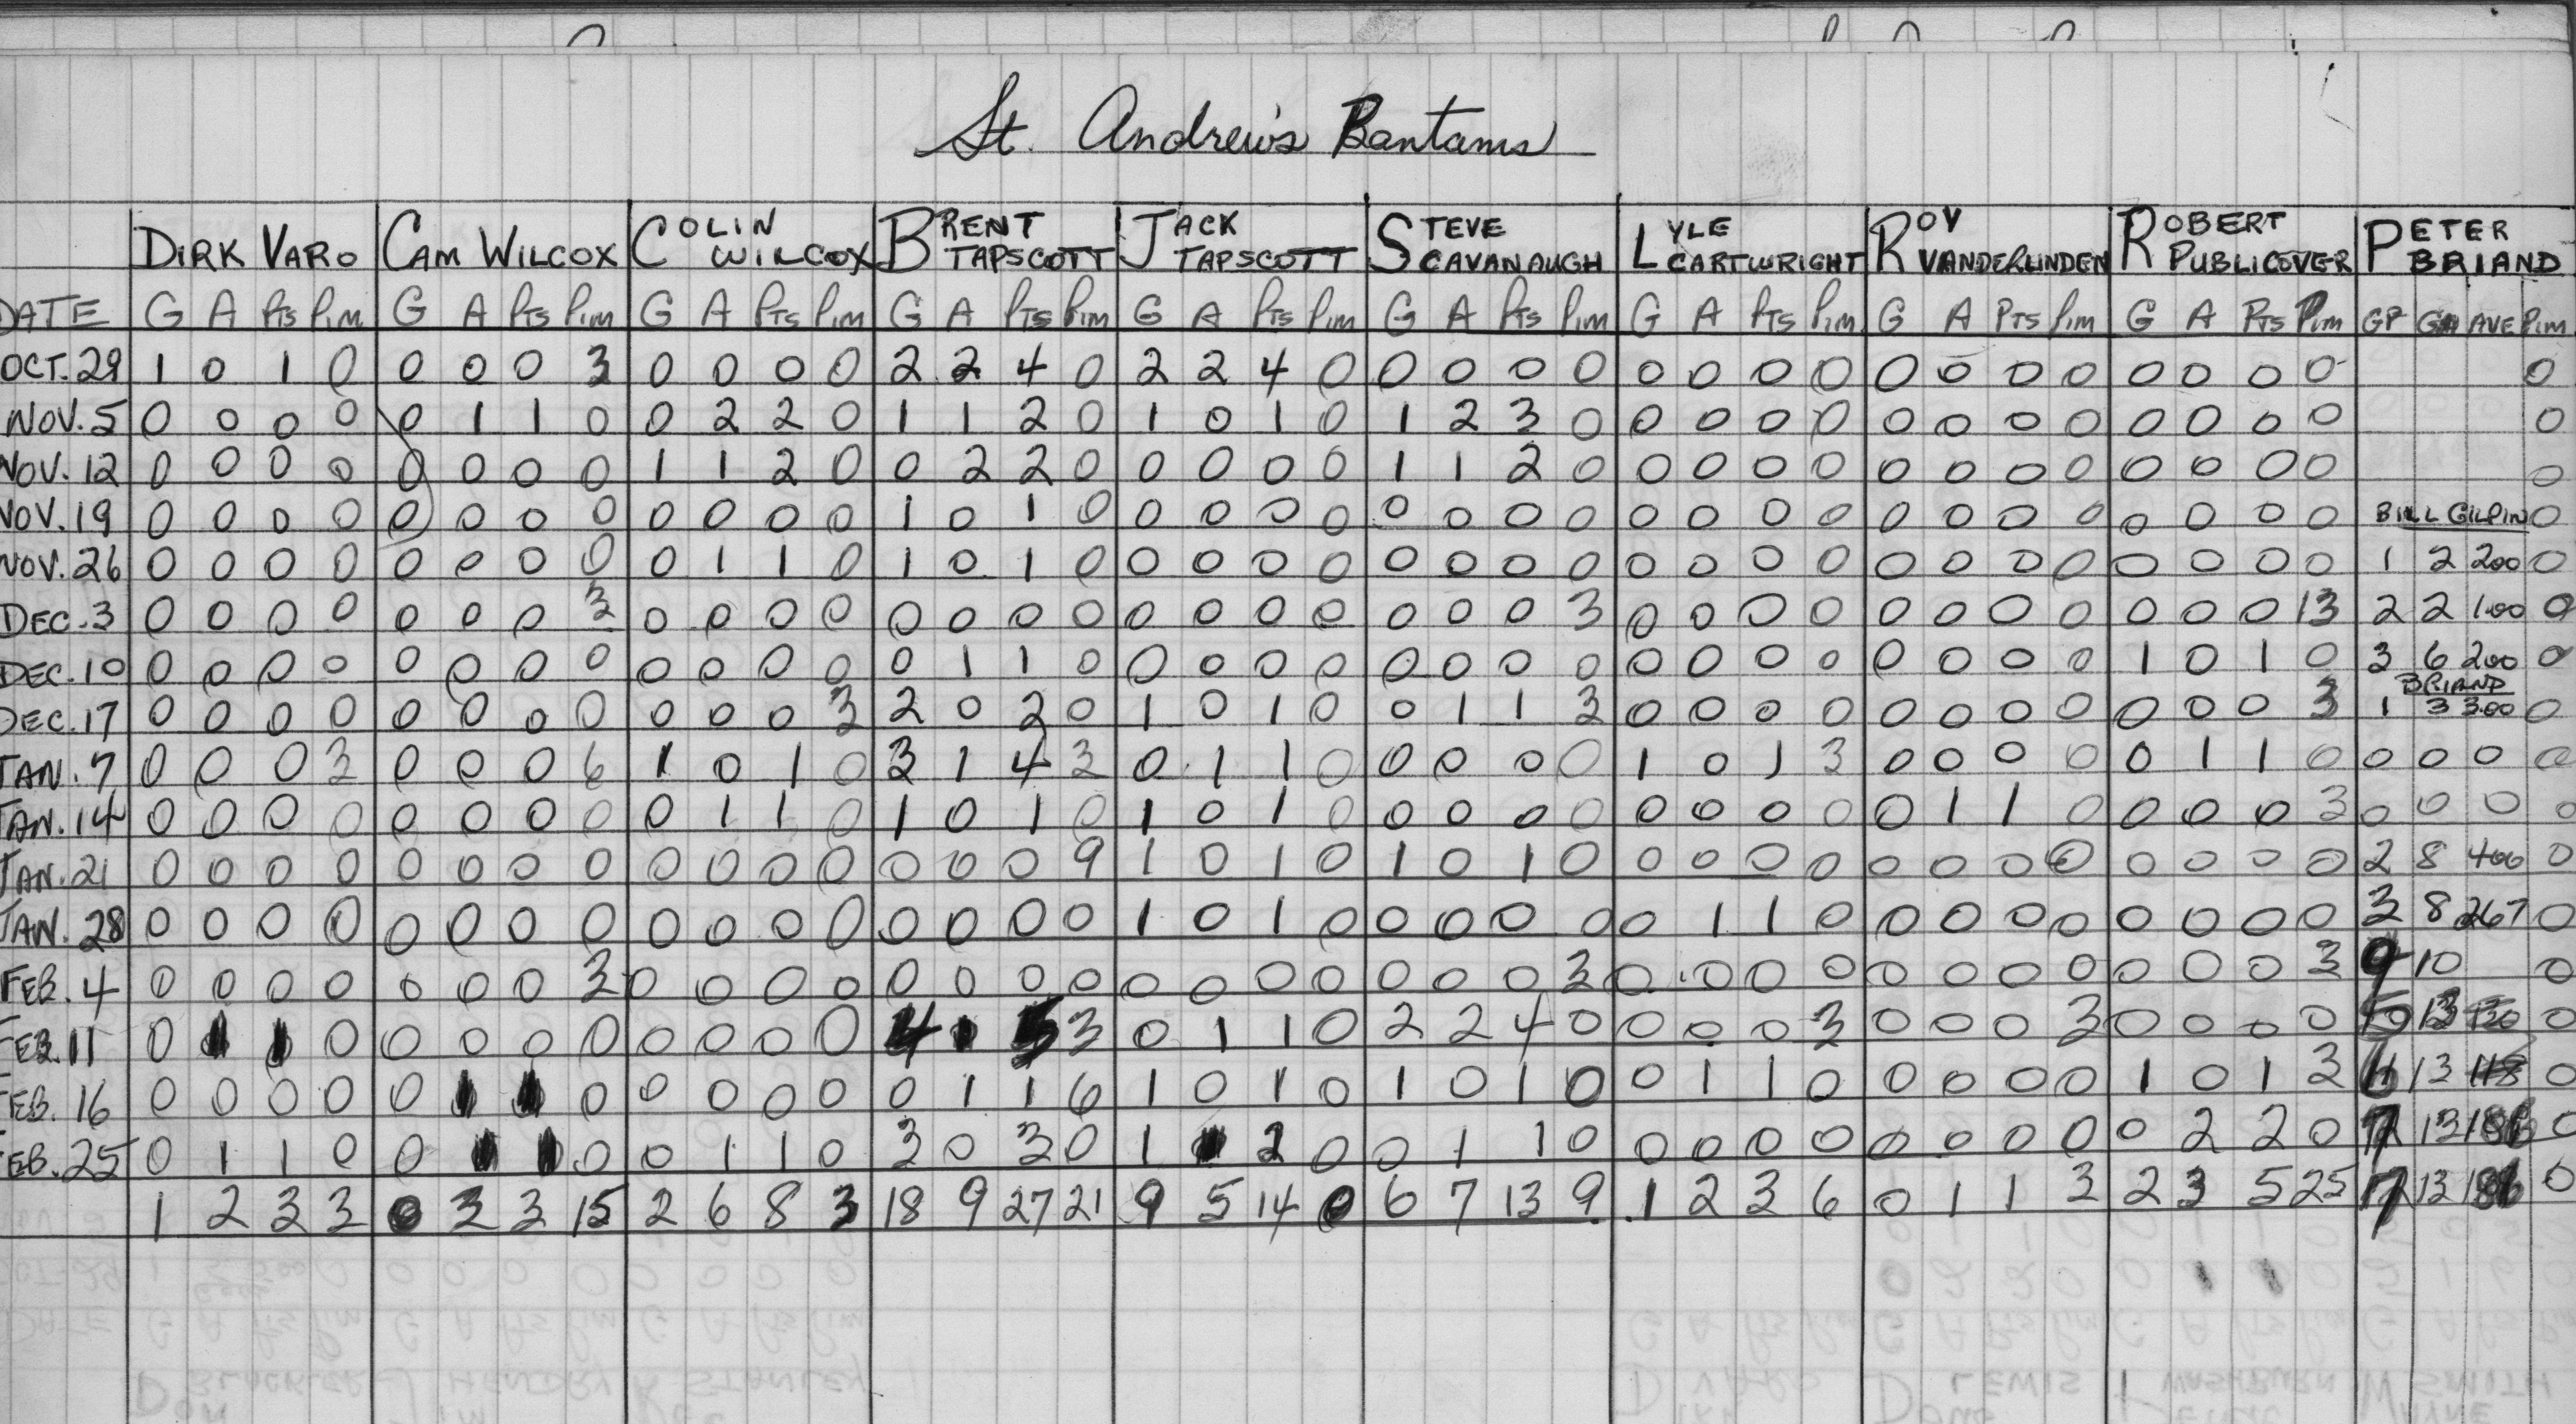 St. Andrew's Bantams
DIRK VARO CAM WILCOX COLIN WILCOX BRENT TAPSCOTT JACK TAPSCOTT STEVE CAVANAUGH LYLE CARTWRIGHT ROY VANDERLINDEN ROBERT PUBLICOVER PETER BRIAND
DATE G A PTS PIM G A PTS PIM G A PTS PIM G A PTS PIM G A PTS PIM G A PTS PIM G A PTS PIM G A PTS PIM G A PTS PIM GP GA AVE PIM
OCT. 29 1 0 1 0 0 0 0 3 0 0 0 0 2 2 4 0 2 2 4 0 0 0 0 0 0 0 0 0 0 0 0 0 0 0 0 0 0
NOV. 5 0 0 0 0 0 1 1 0 0 2 2 0 1 1 2 0 1 0 1 0 1 2 3 0 0 0 0 0 0 0 0 0 0 0 0 0 0
NOV. 12 0 0 0 0 0 0 0 0 1 1 2 0 0 2 2 0 0 0 0 0 1 1 2 0 0 0 0 0 0 0 0 0 0 0 0 0 0
NOV. 19 0 0 0 0 0 0 0 0 0 0 0 0 1 0 1 0 0 0 0 0 0 0 0 0 0 0 0 0 0 0 0 0 0 0 0 0 BILL GILPIN 0
NOV. 26 0 0 0 0 0 0 0 0 0 1 1 0 1 0 1 0 0 0 0 0 0 0 0 0 0 0 0 0 0 0 0 0 0 0 0 0 1 2 200 0
DEC. 3 0 0 0 0 0 0 0 3 0 0 0 0 0 0 0 0 0 0 0 0 0 0 0 3 0 0 0 0 0 0 0 0 0 0 0 13 2 2 1.00 0
DEC. 10 0 0 0 0 0 0 0 0 0 0 0 0 0 1 1 0 0 0 0 0 0 0 0 0 0 0 0 0 0 0 0 0 1 0 1 0 3 6 200 0
BRIAND
DEC. 17 0 0 0 0 0 0 0 0 0 0 0 3 2 0 2 0 1 0 1 0 0 1 1 3 0 0 0 0 0 0 0 0 0 0 0 3 1 3 3.00 0
JAN. 7 0 0 0 3 0 0 0 6 1 0 1 0 3 1 4 3 0 1 1 0 0 0 0 0 1 0 1 3 0 0 0 0 0 1 1 0 0 0 0 0
JAN. 14 0 0 0 0 0 0 0 0 0 1 1 0 1 0 1 0 1 0 1 0 0 0 0 0 0 0 0 0 0 1 1 0 0 0 0 3 0 0 0 0
JAN. 21 0 0 0 0 0 0 0 0 0 0 0 0 0 0 0 9 1 0 1 0 1 0 1 0 0 0 0 0 0 0 0 0 0 0 0 0 2 8 400 0
JAN. 28 0 0 0 0 0 0 0 0 0 0 0 0 0 0 0 0 1 0 1 0 0 0 0 0 0 1 1 0 0 0 0 0 0 0 0 0 3 8 267 0
FEB. 4 0 0 0 0 0 0 0 3 0 0 0 0 0 0 0 0 0 0 0 0 0 0 0 3 0 0 0 0 0 0 0 0 0 0 0 3 10 0
FEB. 11 0 1 1 0 0 0 0 0 0 0 0 0 4 1 5 3 0 1 1 0 2 2 4 0 0 0 0 3 0 0 0 3 0 0 0 0 13 0
FEB. 16 0 0 0 0 0 1 1 0 0 0 0 0 0 1 1 6 1 0 1 0 1 0 1 0 0 1 1 0 0 0 0 0 1 0 1 3 13 0
FEB. 25 0 1 1 0 0 1 1 0 0 1 1 0 3 0 3 0 1 1 2 0 0 1 1 0 0 0 0 0 0 0 0 0 0 2 2 0 7 13 0
1 2 3 3 0 3 3 15 2 6 8 3 18 9 27 21 9 5 14 0 6 7 13 9 1 2 3 6 0 1 1 3 2 3 5 25 7 13 0